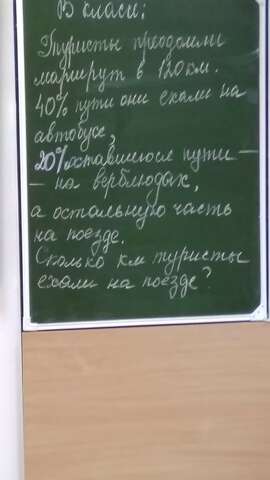 В классе:
Туристы преодолели
маршрут в 120 км.
40% пути они ехали на
автобусе,
20% оставшегося пути –
– на верблюдах,
а остальную часть
на поезде.
Сколько км туристы
ехали на поезде?